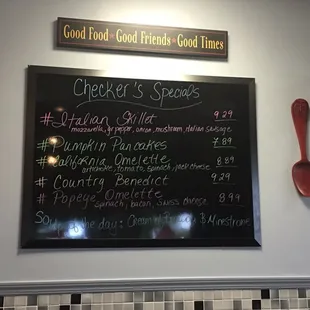 Good Food Good Friends Good Times
Checker's Specials
# Italian Skillet 9.29
mozzarella, gr pepper, onion, mushroom, italian sausage
# Pumpkin Pancakes 7.89
# California Omelette 8.89
artichoke, tomato, spinach, jack cheese
# Country Benedict 9.29
# Papeye Omelette 8.99
spinach, bacon, swiss cheese
of the day: Cream of & Minestrone